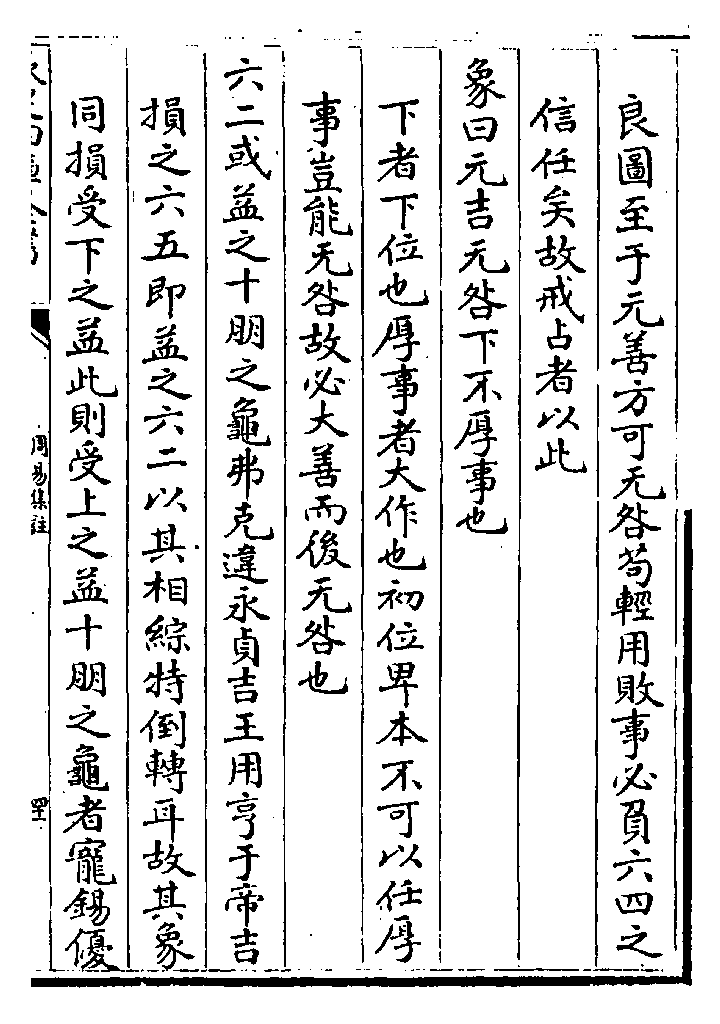 良圖至于元善方可无咎苟輕用敗事必負六四之
信任矣故戒占者以此
象曰元吉无咎下不厚事也
下者下位也厚事者大作也初位卑本不可以任厚
事豈能无咎故必大善而後无咎也
六二或益之十朋之龜弗克違永貞吉王用亨于帝吉
損之六五即益之六二以其相綜特倒轉耳故其象
同損受下之益此則受上之益十朋之龜者寵錫優
周易集註